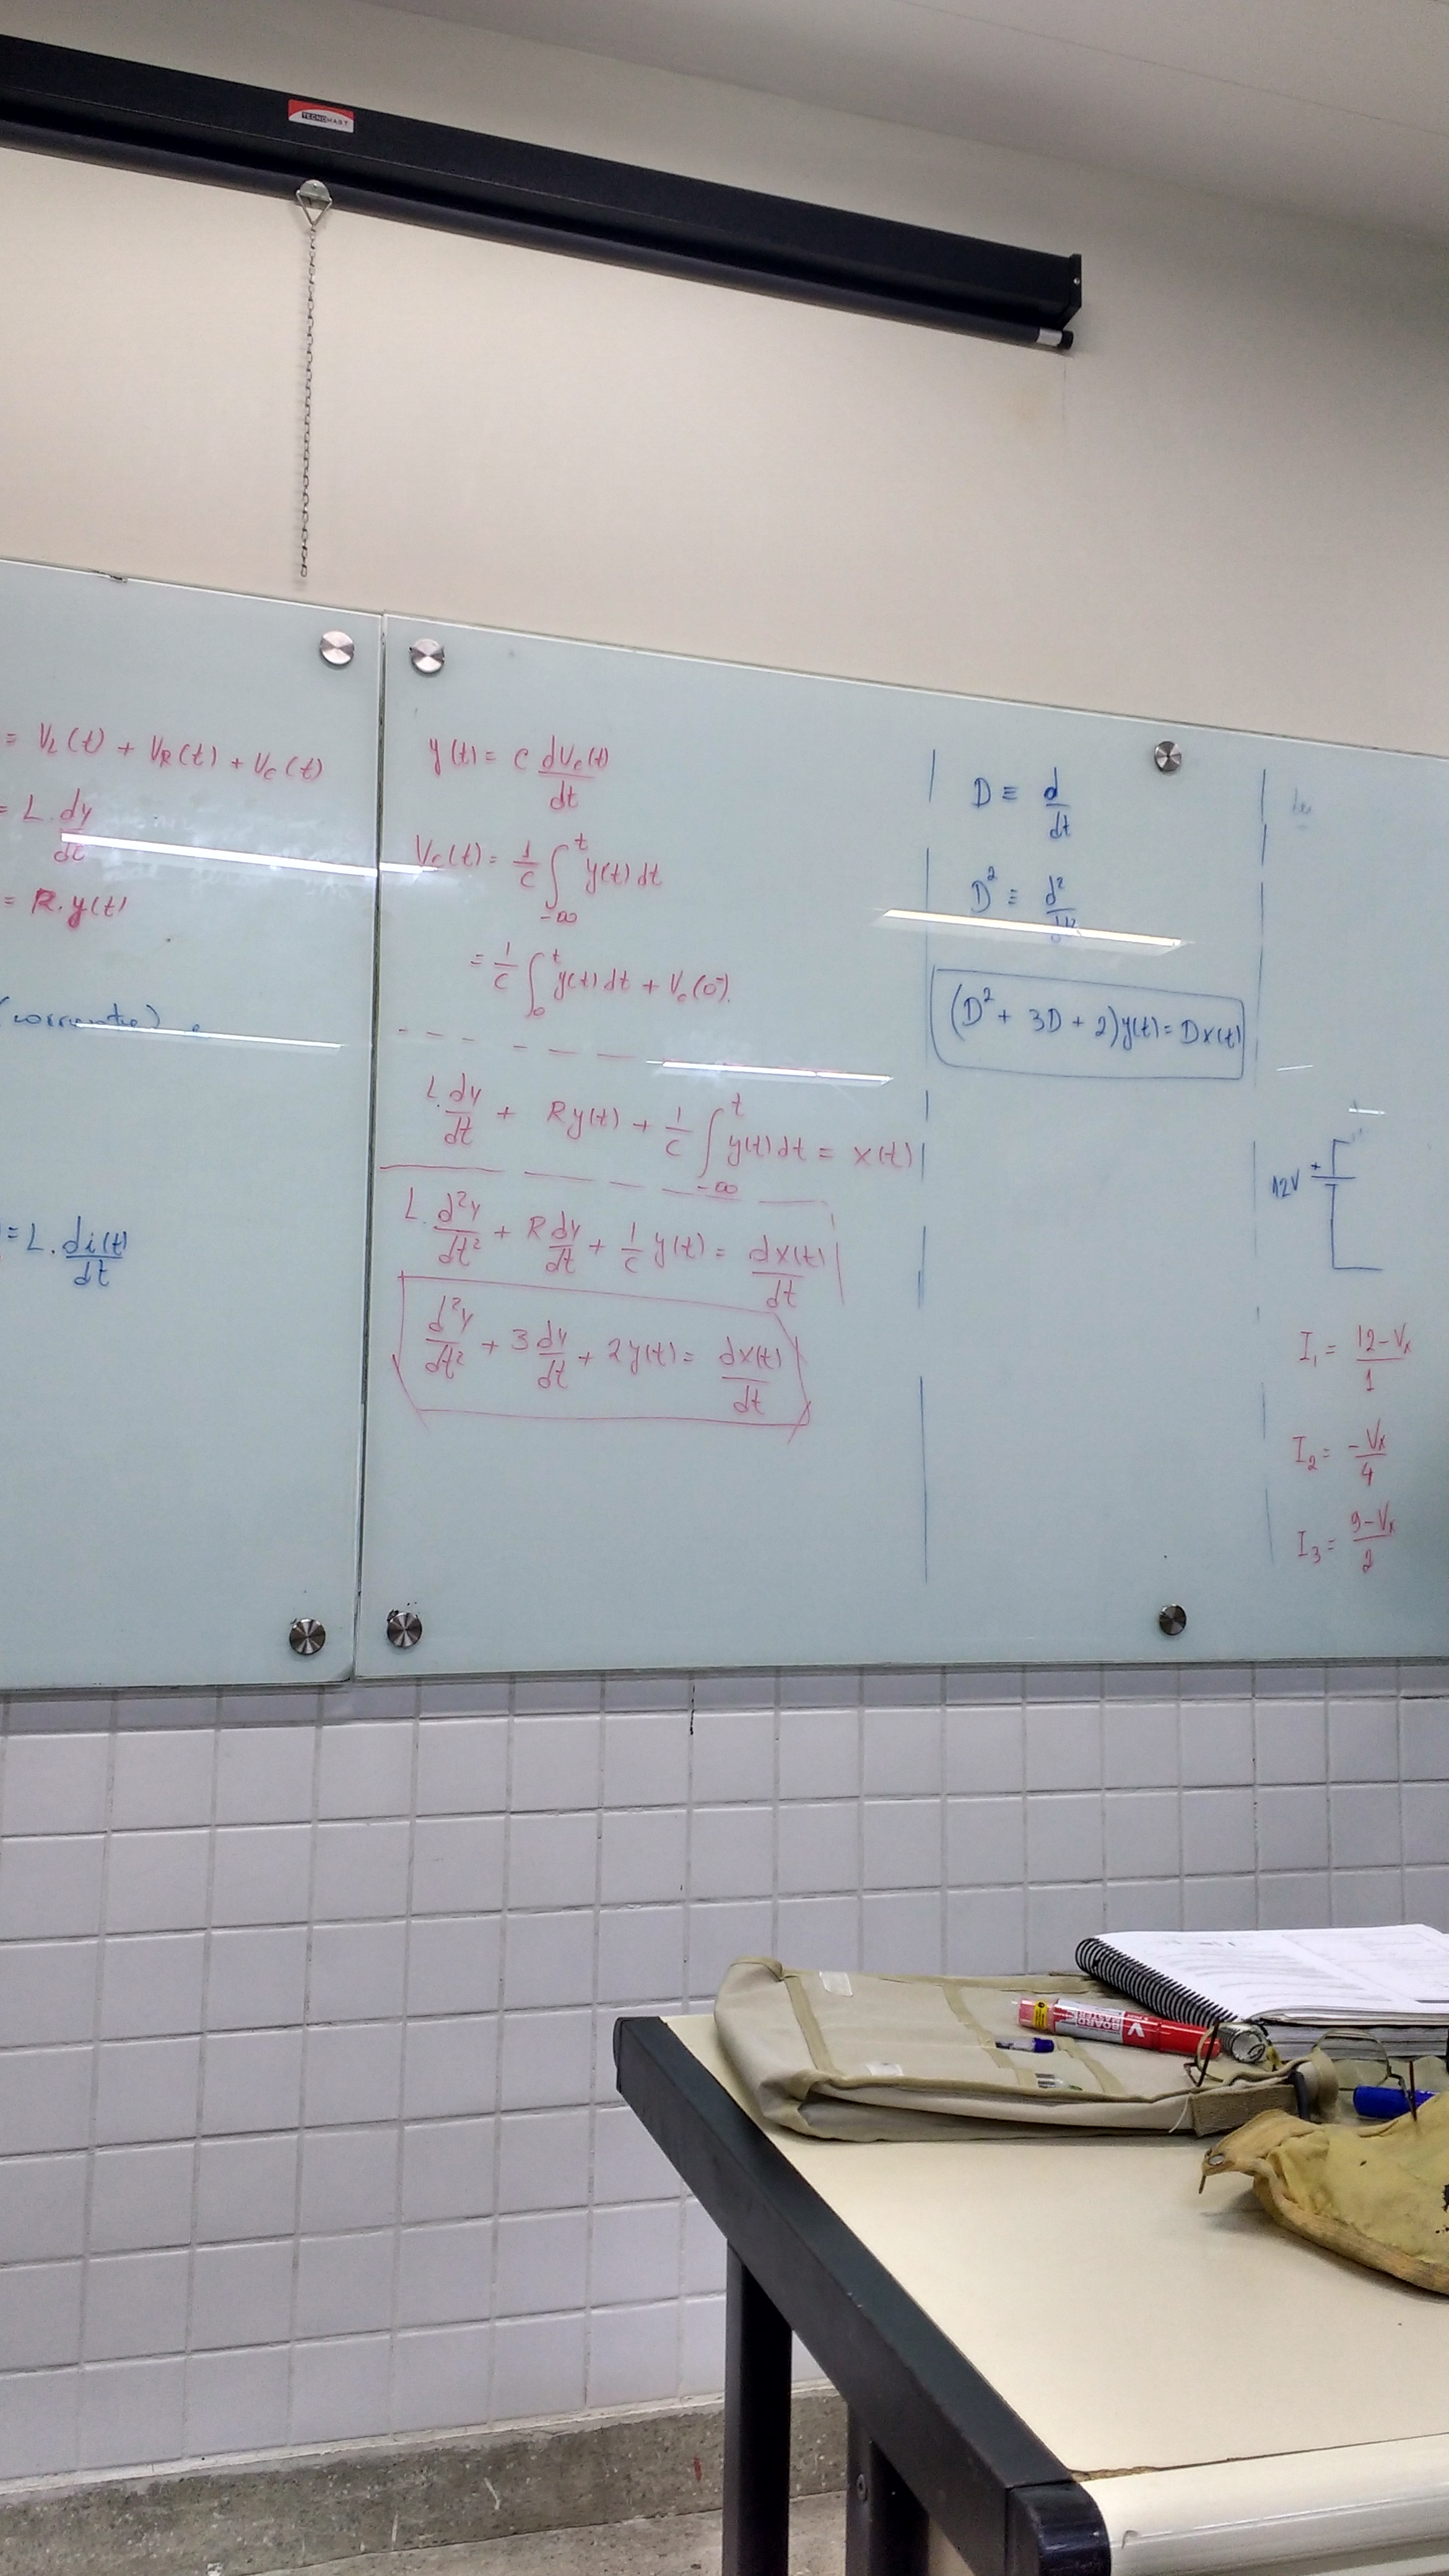 TECNOMART
= V_L(t) + V_R(t) + V_c(t)
= L. dy/dt
= R. y(t)
(corrente)
= L. di(t)/dt
y(t) = C dV_c(t)/dt
V_c(t) = 1/C ∫_{-∞}^{t} y(t) dt
= 1/C ∫_{0}^{t} y(t) dt + V_c(0⁻).
L. dy/dt + Ry(t) + 1/C ∫_{-∞}^{t} y(t) dt = x(t)
L. d²y/dt² + R dy/dt + 1/C y(t) = dx(t)/dt
d²y/dt² + 3 dy/dt + 2y(t) = dx(t)/dt
D ≡ d/dt
D² ≡ d²/dt²
(D² + 3D + 2)y(t) = Dx(t)
12V
+
I₁ = 12-Vx/1
I₂ = -Vx/4
I₃ = 9-Vx/2
V BOARD MASTER